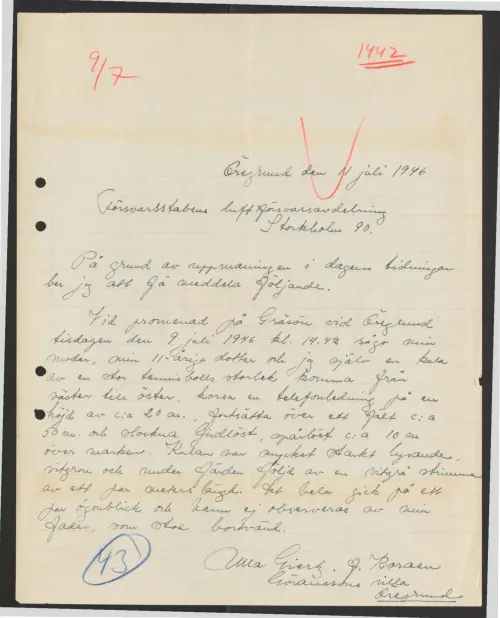 9/7
1442
Öregrund den 11 juli 1946
Försvarsstabens luftförsvarsavdelning
Stockholm 90.
På grund av uppmaningen i dagens tidningar
ber jag att få meddela följande.
Vid promenad på Gräsön vid Öregrund
tisdagen den 9 juli 1946 kl. 14.42 sågo min
moder, min 11-åriga dotter och jag själv en kula
av en stor tennisbolls storlek komma från
väster till öster, korsa en telefonledning på en
höjd av c:a 20 m., fortsätta över ett fält c:a
50 m. och slockna ljudlöst, spårlöst c:a 10 m
över marken. Kulan var mycket starkt lysande,
vitgrön och under färden följd av en vitgrå strimma
av ett par meters längd. Det hela gick på ett
par ögonblick och hann ej observeras av min
fader, som stod bortvänd.
Ulla
Göranssons villa
Öregrund
43